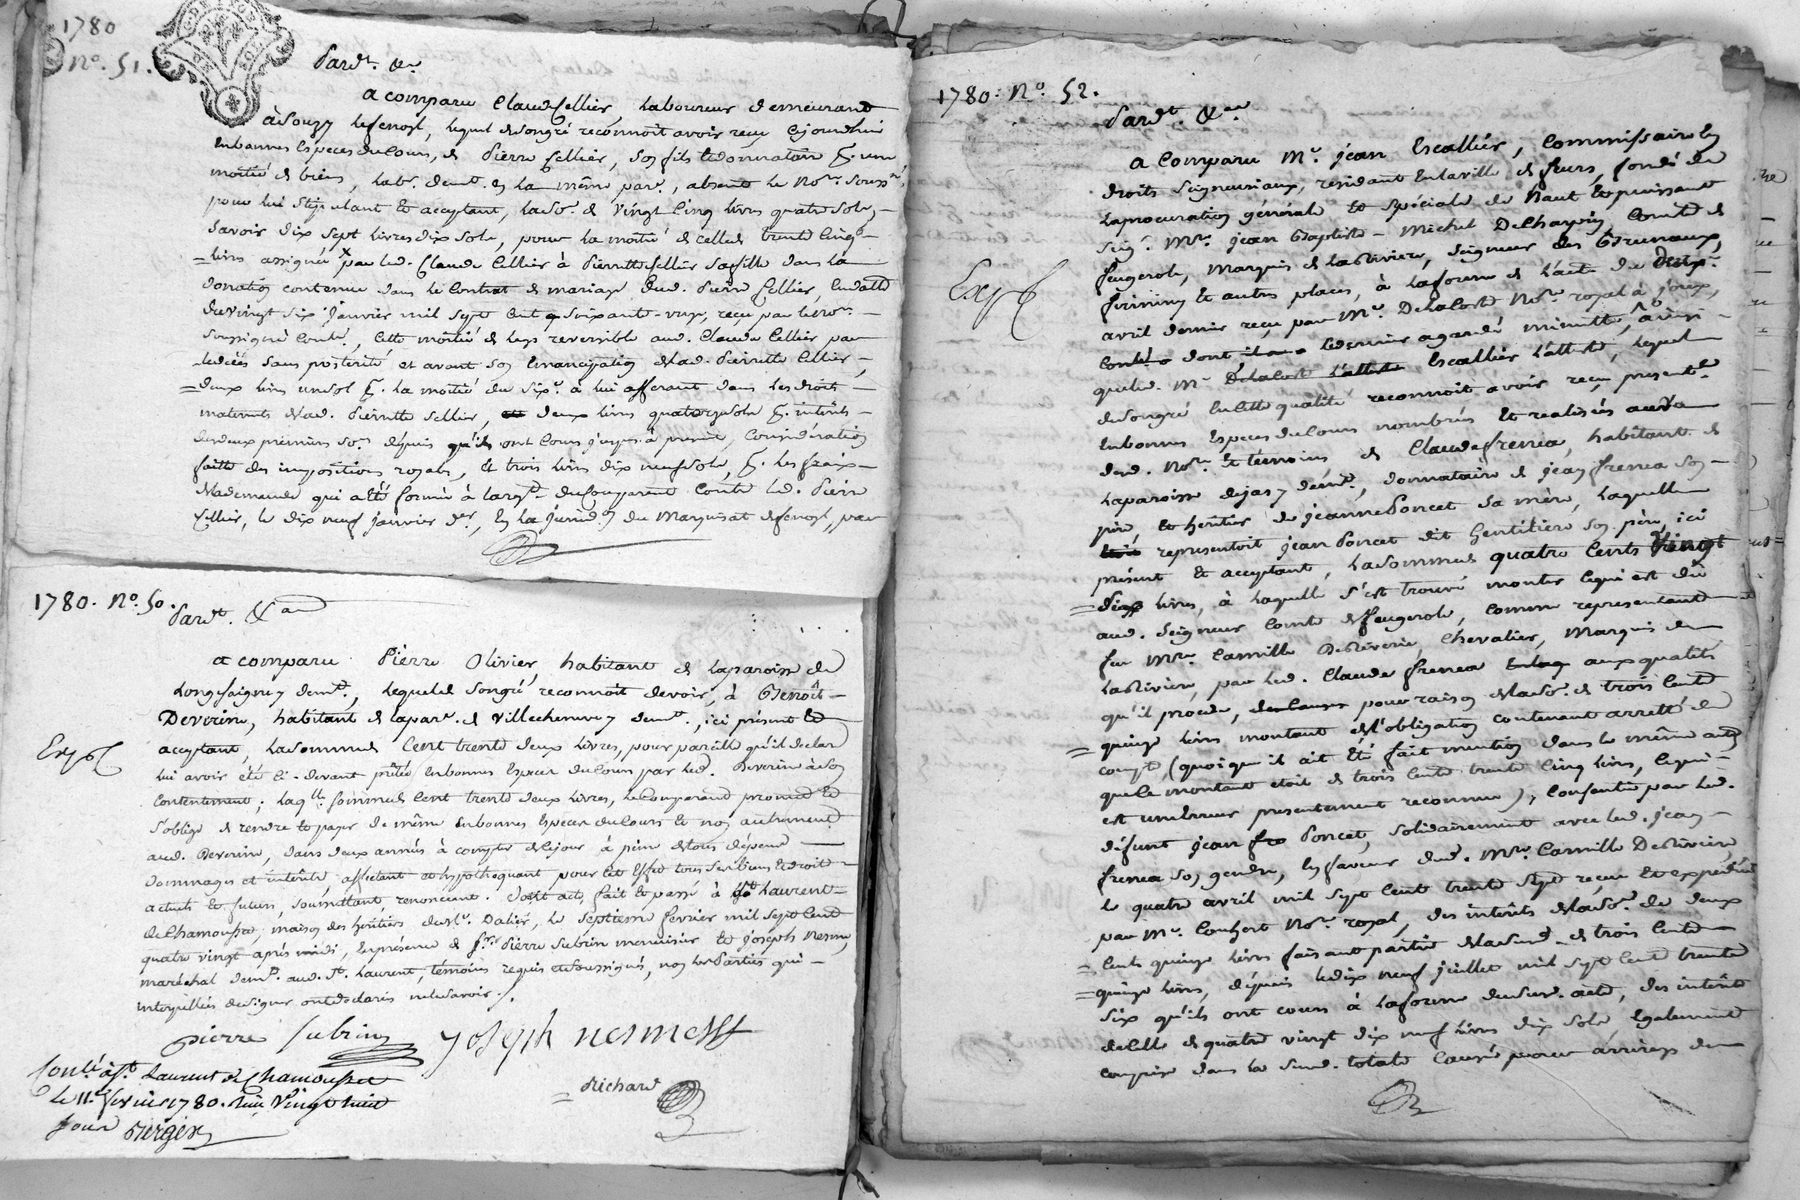 1780
N.º 51.
Pard.t &.a
a comparu Claude Cellier, laboureur demeurant
à Souzy lefenosl, lequel de son gré reconnoit avoir reçu cejourdhui
en bonnes Especes du Cours, de Pierre Cellier, son fils & donnataire p.r une
moitié de biens, lab.r dem.t en la même par.e, absent le No.re Souss.né
pour lui stipulant et acceptant, la so.e de Vingt Cinq livres quatre sols,
Savoir dix sept livres dix sols, pour la moitié de celle de trente Cinq
livres assignée par led. Claude Cellier à Pierrette Cellier sa fille dans la
donation contenue dans le Contrat de mariage dud. Pierre Cellier, en datte
du vingt six janvier mil sept cent soixante-
soussigné Cont.lé, cette moitié de legs reversible aud. Claude Cellier par
le décès sans posterité et avant son Emancipation de lad. Pierrette Cellier,
deux livres un sol p.r la moitié du six.e à lui afferant dans les droits
maternels de lad. Pierrette Cellier, deux livres quatorze sols p.r intérêts
des deux premieres so.es depuis qu'ils ont Cours jusques à present, Considération
faitte des impositions royales, et trois livres dix neuf sols, p.r les fraix
de la demande qui a été formée à la req.te du Comparant Contre led. Pierre
Cellier, le dix neuf janvier d.er, en la jurid.on du Marquisat de fenosl, par
1780. N.º 50.
Pard.t &.a
a comparu Pierre Olivier, habitant de la paroisse de
Longesaigne y dem.t, lequel de son gré reconnoit devoir, à Benoît
Deverine, habitant de la par.e de Villecheneuve y dem.t, ici présent et
acceptant, la somme de Cent trente deux livres, pour pareille qu'il declare
Exp.é
lui avoir été ci-devant prêtée en bonnes Especes du Cours par led. Deverine à son
Contentement; laq.lle somme de Cent trente deux livres, le Comparant promet et
s'oblige de rendre et payer de même en bonnes Especes du Cours et non autrement
aud. Deverine, dans deux années à compter de ce jour à peine de tous dépens
dommages et intérêts, affectant et hypothequant pour cet Effet tous ses biens et droits
actuels et futurs, soumettant, renonceant. Dont acte, fait et passé à S.t Laurent
de Chamousset, maison des héritiers de Dalier, le Septieme février mil sept Cent
quatre vingt après midi, En présence de S.r Pierre Subrin menuisier et Joseph Nesme,
maréchal dem.t aud. S.t Laurent, témoins requis et soussignés, non les Parties qui
interpellées de signer ont déclaré ne le savoir.
pierre Subrin
joseph nesme
Richard
Con.lé à S.t Laurent de Chamousset
le 11.e fevrier 1780. Reçu Vingt huit
sous Berger
1780. N.º 52.
Pard.t &.a
a Comparu M.e jean Escallier, Commissaire en
droits Seigneuriaux, residant en la ville de feurs, fondé de
la procuration générale et spéciale de Haut et puissant
Seig.r M.re jean Baptiste-Michel Delchapin Comte de
feugerole, Marquis de la Riviere, Seigneur des Bruneaux,
firminy et autres places, à la forme de l'acte du
Exp.é
avril dernier reçu par M.e Delacoste No.re royal à joux,
Controlé dont led. ainsi
que led. M.e Escallier l'atteste, lequel
de son gré en cette qualité reconnoit avoir reçu présentem.t
en bonnes Especes du Cours nombrées Et realisées
dud. No.re & témoins de Claude frenea, habitant de
la paroisse de jas y dem.t, donnataire de jean frenea son
pere, et héritier de jeanne Poncet sa mère, laquelle
representoit jean Poncet dit Gentilière son père, ici
présent et acceptant, la somme de quatre Cents Vingt
dix livres, à laquelle s'est trouvé monter ce qui est dû
aud. Seigneur Comte de feugerole, comme representant
feu M.re Camille De Riverie, Chevalier, Marquis de
la Riviere, par led. Claude frenea aux qualités
qu'il procede, pour raison de la so.e de trois Cents
quinze livres montant de l'obligation contenant arretté de
compte, (quoiqu'il ait été fait mention dans le même acte
que le montant étoit de trois Cents trente Cinq livres, ce qui
est une Erreur presentement reconnue), Consentie par led.
défunt jean Poncet, solidairement avec led. jean
frenea son gendre, En faveur dud. M.re Camille De Riviere,
le quatre avril mil sept cent trente sept reçue et expédiée
par M.e Conhert No.re royal, des intérêts de la so.e de deux
Cents quinze livres faisant partie de la susd. de trois Cents
quinze livres, depuis le dix neuf juillet mil sept cent trente
six qu'ils ont cours à la forme dud. acte, des intérêts
de celle de quatre vingt dix neuf livres dix sols, Egalement
comprise dans la susd. totale Causée pour arrérages de